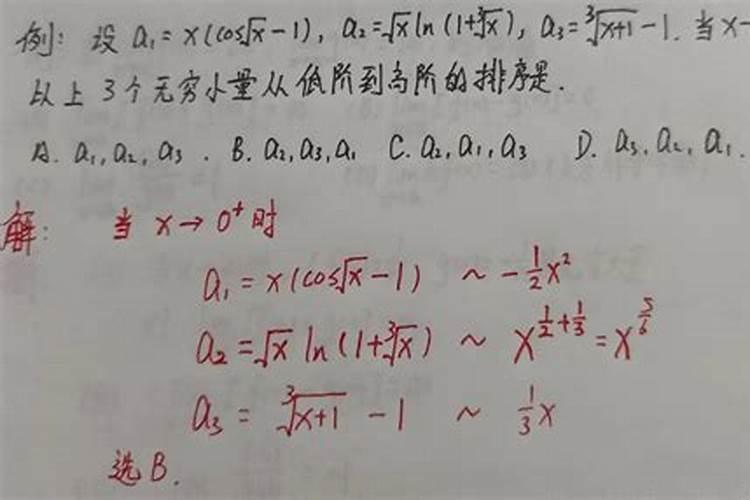 例: 设 a₁=x(cos√x-1), a₂=√x ln(1+∛x), a₃=∛(x+1)-1. 当x→
以上3个无穷小量从低阶到高阶的排序是.
A. a₁,a₂,a₃. B. a₂,a₃,a₁ C. a₂,a₁,a₃ D. a₃,a₂,a₁.
解: 当 x→0⁺时
a₁=x(cos√x-1) ~ -1/2x²
a₂=√x ln(1+∛x) ~ x^(1/2+1/3)=x^(5/6)
a₃=∛(x+1)-1 ~ 1/3x
选B.